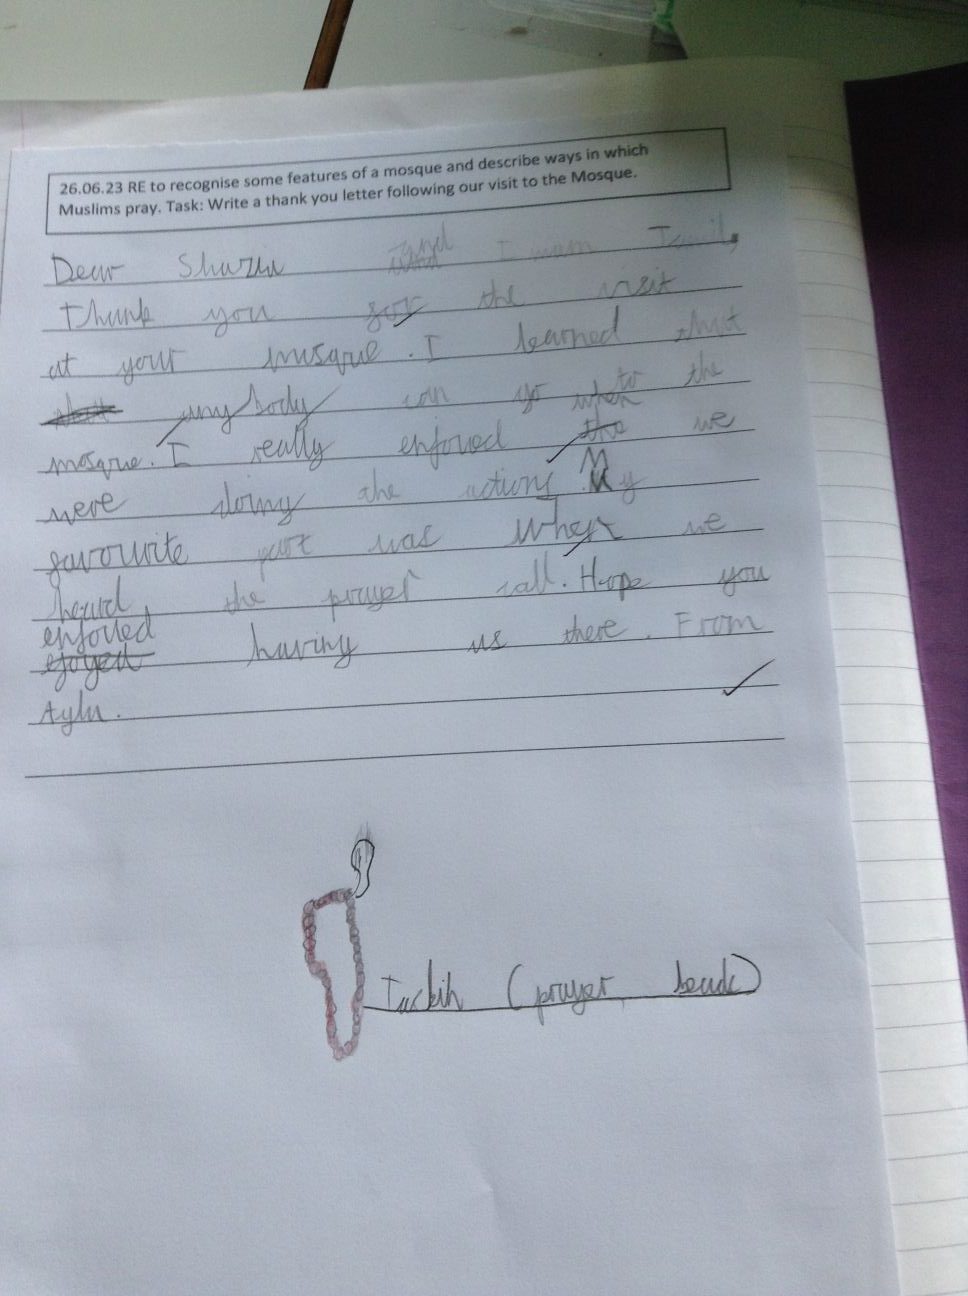 26.06.23 RE to recognise some features of a mosque and describe ways in which
Muslims pray. Task: Write a thank you letter following our visit to the Mosque.
Dear and I
Thank you for the visit
at your musque. I learned that
anybody can go to the
mosque. I really enjoyed when we
were doing the actions. My
favourite part was when we
heard the prayer call. Hope you
enjoyed having us there. From
Ayla.
Tasbih (prayer beads)